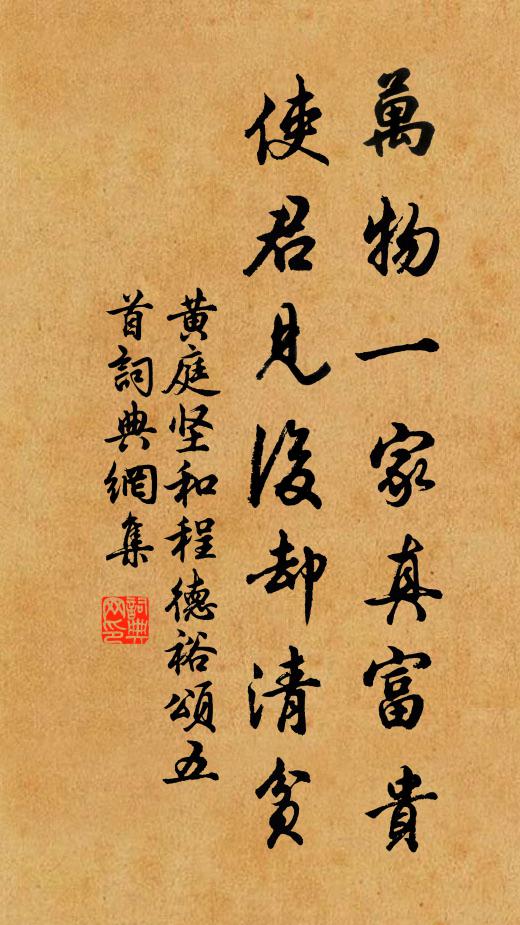 萬物一家真富貴
使君見後却清貧
黄庭坚和程德裕頌五
首詞典網集
詞典
网印